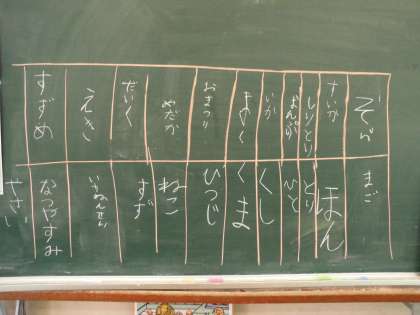 すいか
しりとり
いか
おまつり
めだか
だいく
えき
すずめ
まご
ほん
とり
ひと
くし
くま
ひつじ
ねこ
すず
いちねんせい
なつやすみ
やさい